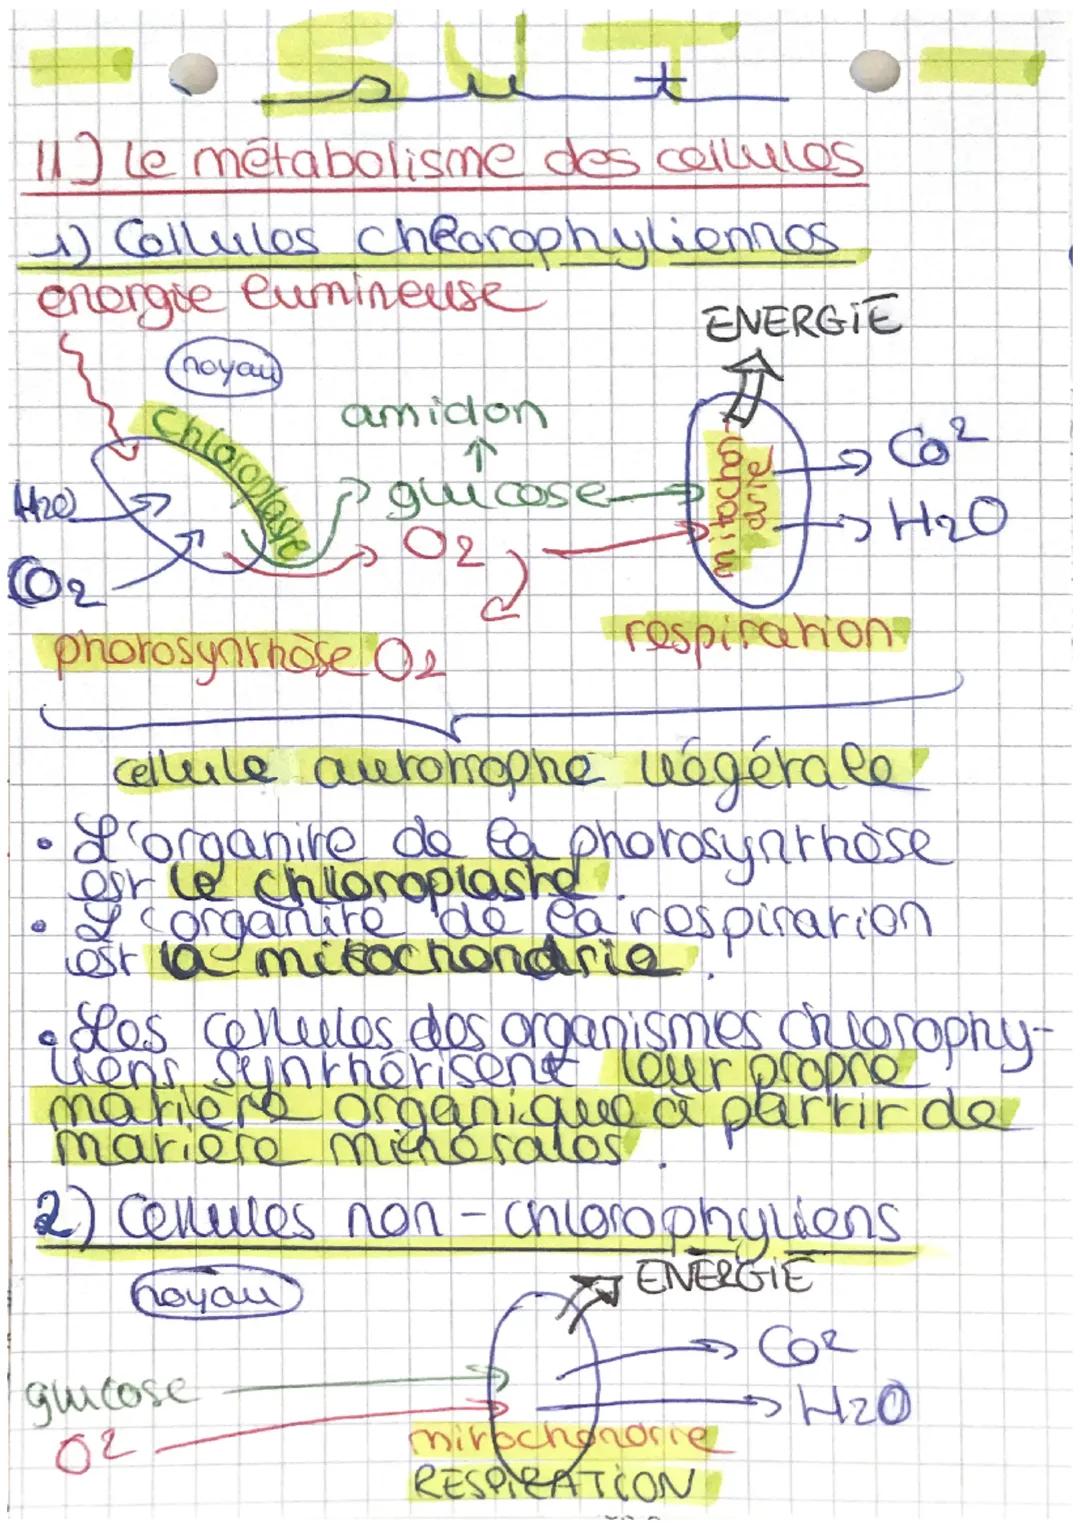 SVT
svt
II) Le métabolisme des cellules
1) Cellules chlorophyliennes
énergie lumineuse
ENERGIE
noyau
Chloroplaste
amidon
H2O
glucose
O2
CO2
mitochondrie
Co²
H2O
photosynthèse
O2
respiration
cellule autotrophe végétale
• L'organite de la photosynthèse
est le chloroplaste.
• L'organite de la respiration
est la mitochondrie.
• Les cellules des organismes chlorophy-
liens synthétisent leur propre
matière organique à partir de
matière minérales.
2) Cellules non-chlorophyliens
noyau
ENERGIE
Co²
glucose
H2O
O2
mitochondrie
RESPIRATION